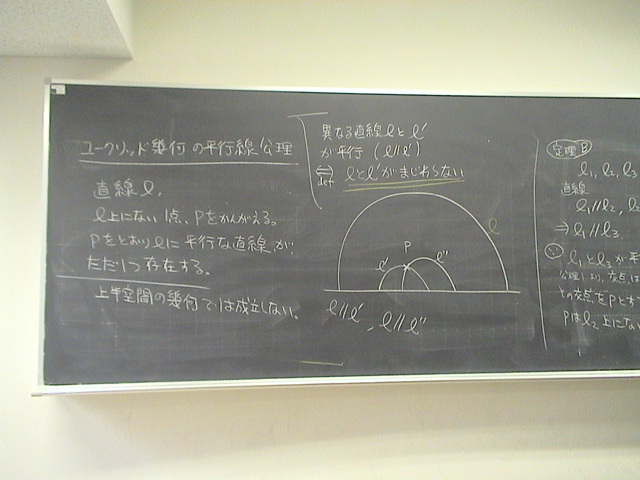 ユークリッド幾何の平行線公理
直線 ℓ,
ℓ上にない1点、Pをかんがえる。
Pをとおりℓに平行な直線が,
ただ1つ存在する。
上半空間の幾何では成立しない。
異なる直線 ℓ と ℓ'
が平行 (ℓ // ℓ')
⇔ ℓとℓ'がまじわらない
def
ℓ
P
ℓ' ℓ''
ℓ // ℓ', ℓ // ℓ''
定理B
ℓ1, ℓ2, ℓ3
直線
ℓ1 // ℓ2, ℓ2
⇒ ℓ1 // ℓ3
∵ ℓ1とℓ3が平
公理より, 交点は
その交点をPとす
Pはℓ2上にない